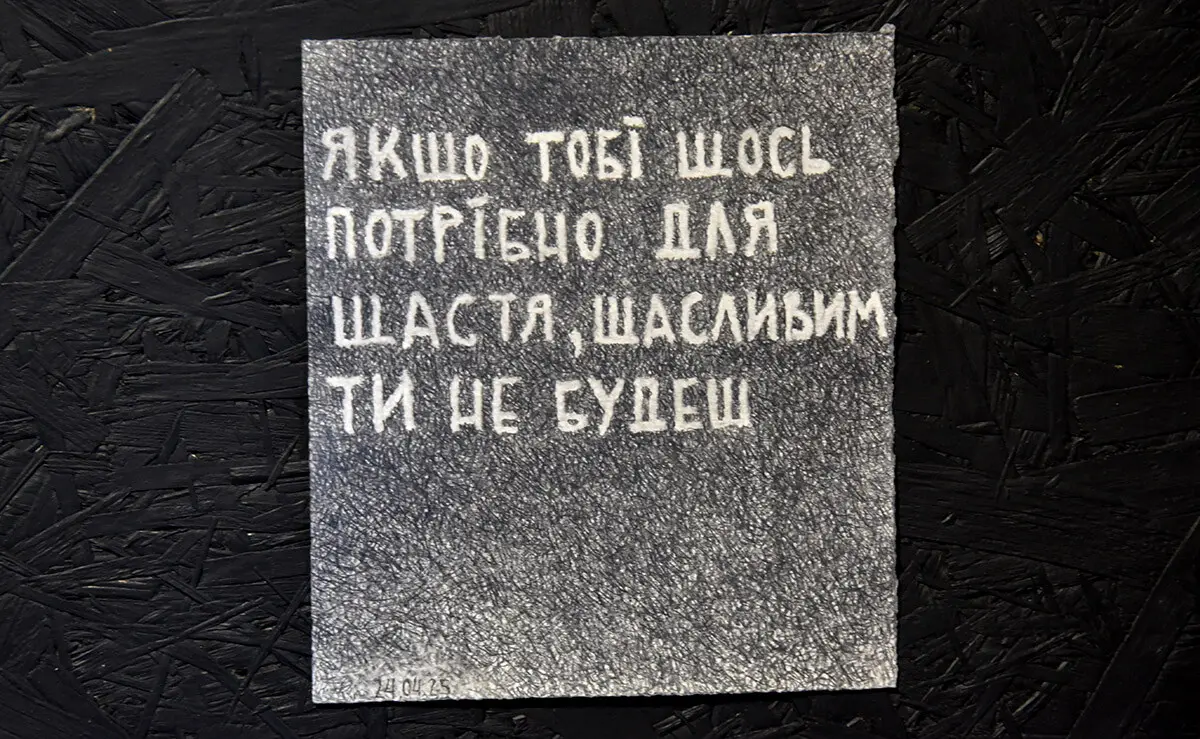 ЯКЩО ТОБІ ЩОСЬ
ПОТРІБНО ДЛЯ
ЩАСТЯ, ЩАСЛИВИМ
ТИ НЕ БУДЕШ
24.04.25